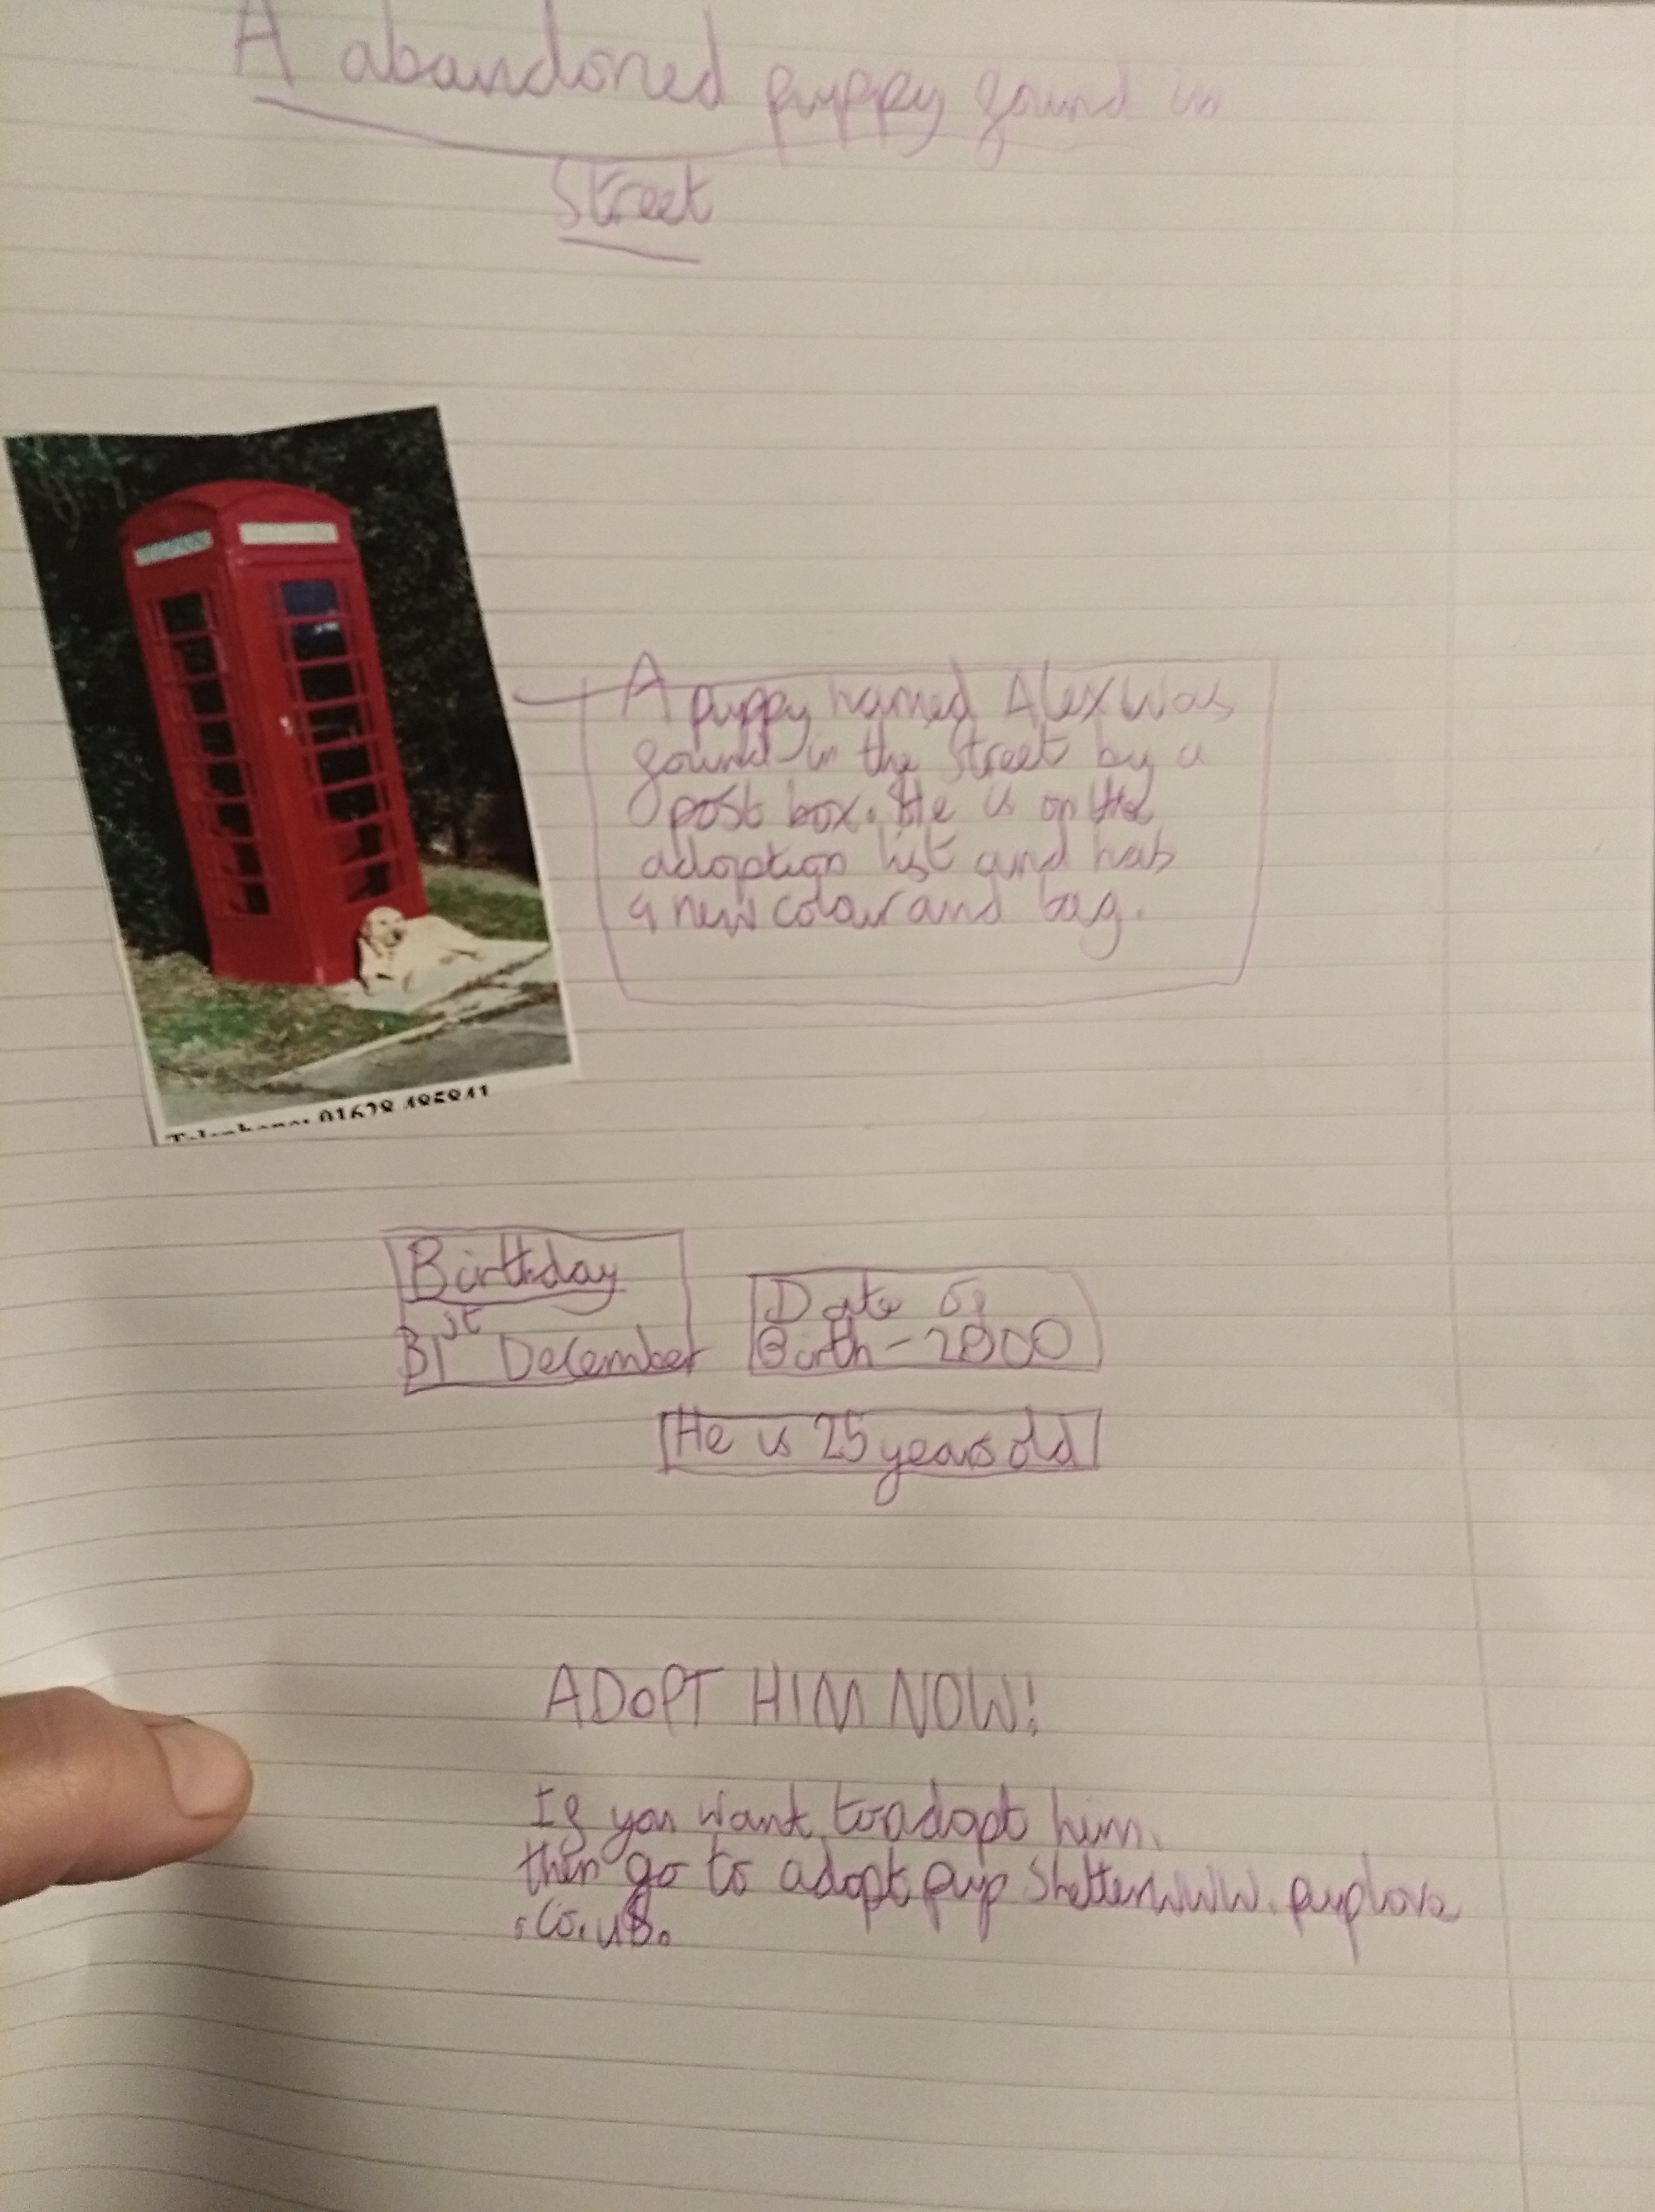 A abandoned puppy found in
Street
A puppy named Alex was
found in the Street by a
post box. He is on the
adoption list and has
a new colour and bag.
Telephone: 01628 485841
Birthday
31st December
Date of
Birth - 2000
He is 25 years old
ADOPT HIM NOW!
If you want to adopt him.
then go to adopt pup Shelter WWW. puplove
.co.uk.